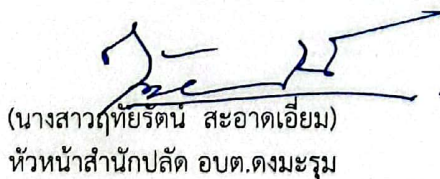 (นางสาวฤทัยรัตน์ สะอาดเอี่ยม)
หัวหน้าสำนักปลัด อบต.ดงมะรุม